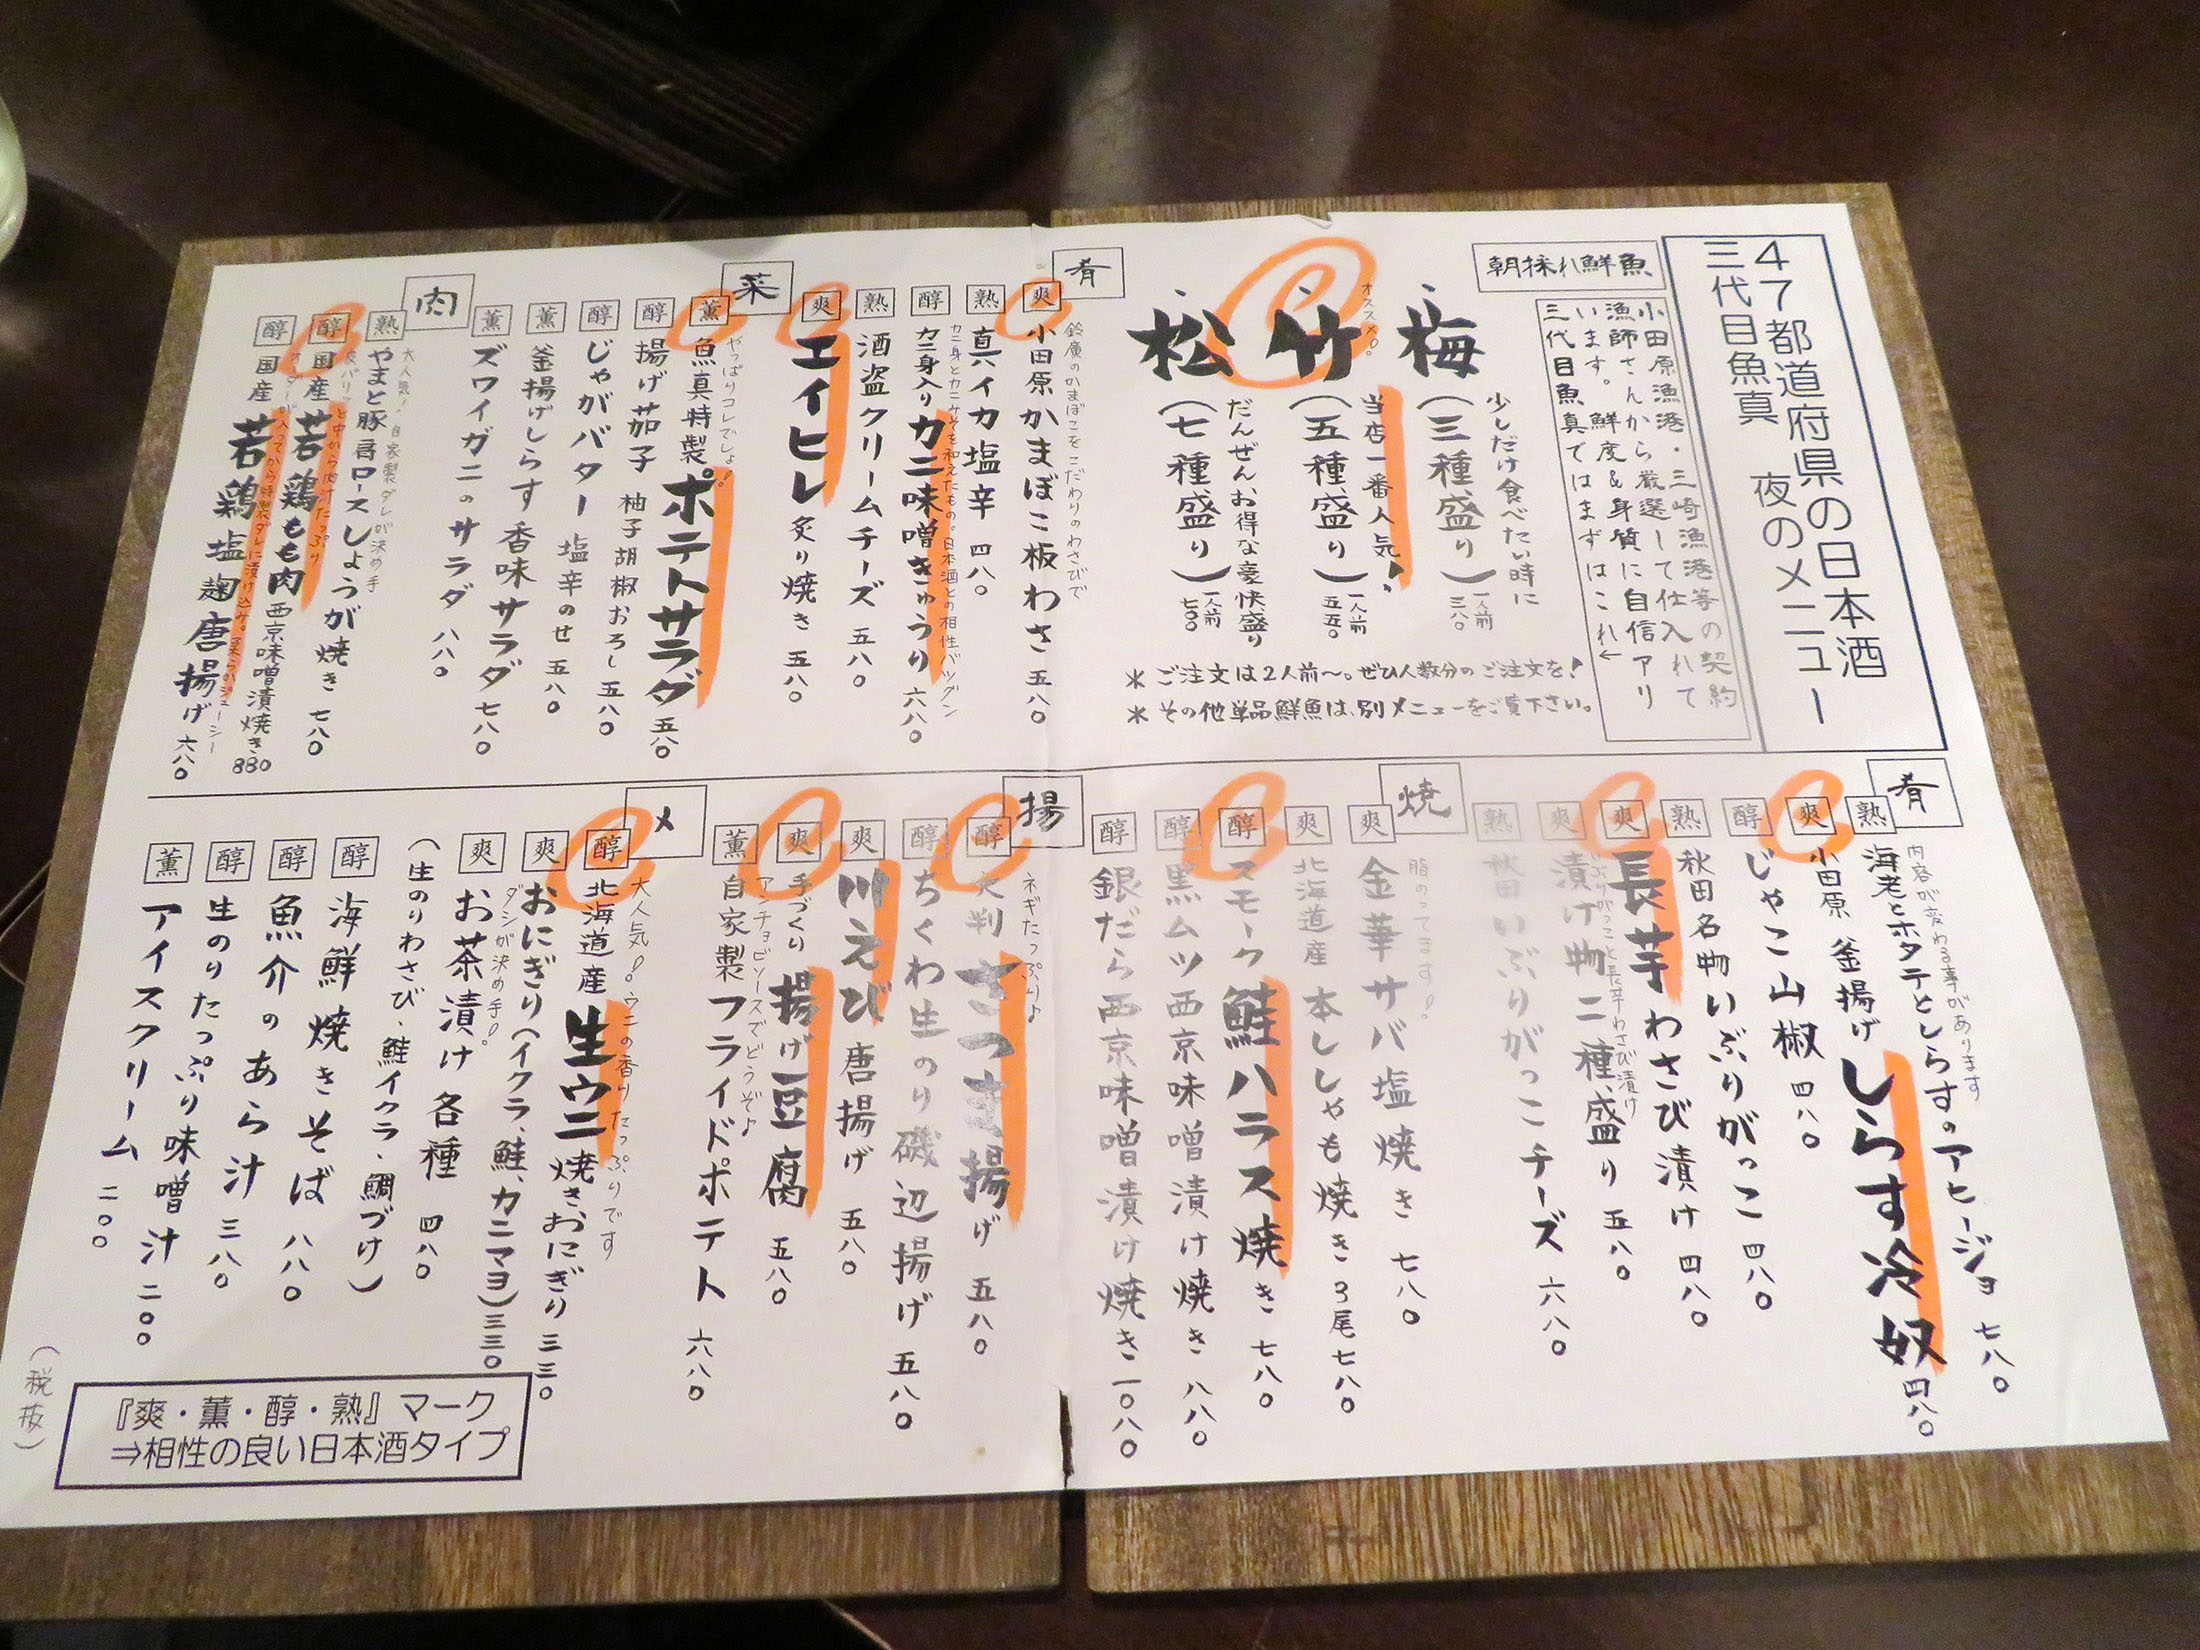 47都道府県の日本酒
三代目魚真 夜のメニュー
朝採れ鮮魚
小田原漁港・三崎漁港等の契約
漁師さんから厳選して仕入れて
います。鮮度&身質に自信アリ
三代目魚真ではまずはこれ←
少しだけ食べたい時に
梅(三種盛り)一人前 三八〇
オススメ
当店一番人気!
竹(五種盛り)一人前 五五〇
だんぜんお得な豪快盛り
松(七種盛り)一人前 七〇〇
*ご注文は2人前~。ぜひ人数分のご注文を!
*その他単品鮮魚は、別メニューをご覧下さい。
肴
鈴廣のかまぼこをこだわりのわさびで
爽 小田原かまぼこ板わさ 五八〇
熟 真イカ塩辛 四八〇
カニ身とカニみそを和えたもの。日本酒との相性バツグン
醇 カニ身入りカニ味噌きゅうり 六八〇
熟 酒盗クリームチーズ 五八〇
爽 エイヒレ炙り焼き 五八〇
菜
やっぱりコレでしょ!
薫 魚真特製ポテトサラダ 五八〇
醇 揚げ茄子 柚子胡椒おろし 五八〇
醇 じゃがバター 塩辛のせ 五八〇
薫 釜揚げしらす香味サラダ 七八〇
薫 ズワイガニのサラダ 八八〇
肉
大人気!自家製ダレが決め手
熟 やまと豚肩ロースしょうが焼き 七八〇
皮パリッと中から肉汁たっぷり
醇 国産若鶏もも肉西京味噌漬焼き 880
オーダーが入ってから特製ダレに漬け込み。柔らかジューシー
醇 国産若鶏塩麹唐揚げ 六八〇
肴
内容が変わる事があります
熟 海老とホタテとしらすのアヒージョ 七八〇
爽 小田原 釜揚げしらす冷奴 四八〇
醇 じゃこ山椒 四八〇
熟 秋田名物いぶりがっこ 四八〇
爽 長芋わさび漬け 四八〇
いぶりがっこと長芋わさび漬け
爽 漬け物二種盛り 五八〇
熟 秋田いぶりがっこチーズ 六八〇
焼
脂のってます!
爽 金華サバ塩焼き 七八〇
爽 北海道産 本ししゃも焼き3尾 七八〇
醇 スモーク鮭ハラス焼き 七八〇
醇 黒ムツ西京味噌漬け焼き 八八〇
醇 銀だら西京味噌漬け焼き 一〇八〇
揚
ネギたっぷり♪
醇 大判さつま揚げ 五八〇
醇 ちくわ生のり磯辺揚げ 五八〇
爽 川えび唐揚げ 五八〇
爽 手づくり揚げ豆腐 五八〇
アンチョビソースでどうぞ♪
薫 自家製フライドポテト 六八〇
〆
大人気!ウニの香りたっぷりです
醇 北海道産生ウニ焼きおにぎり 三三〇
爽 おにぎり(イクラ、鮭、カニマヨ) 三三〇
ダシが決め手!
爽 お茶漬け各種 四八〇
(生のりわさび、鮭イクラ、鯛づけ)
醇 海鮮焼きそば 八八〇
醇 魚介のあら汁 三八〇
醇 生のりたっぷり味噌汁 二〇〇
薫 アイスクリーム 二〇〇
『爽・薫・醇・熟』マーク
⇒相性の良い日本酒タイプ
(税抜)